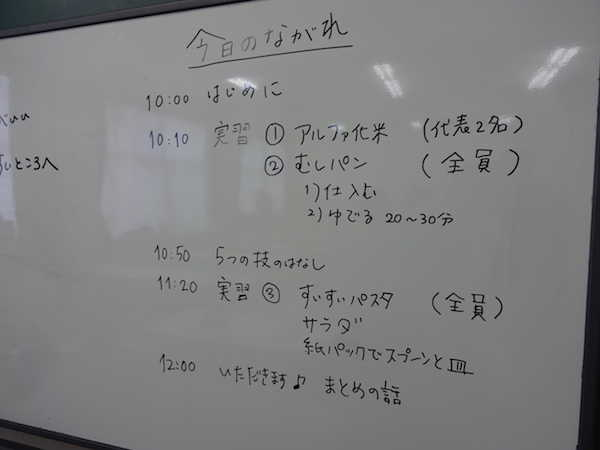 今日のながれ
10:00 はじめに
10:10 実習 ① アルファ化米 (代表2名)
② むしパン (全員)
1) 仕込む
2) ゆでる 20〜30分
10:50 5つの技のはなし
11:20 実習 ③ すいすいパスタ (全員)
サラダ
紙パックでスプーンと皿
12:00 いただきます♪ まとめの話
いところへ